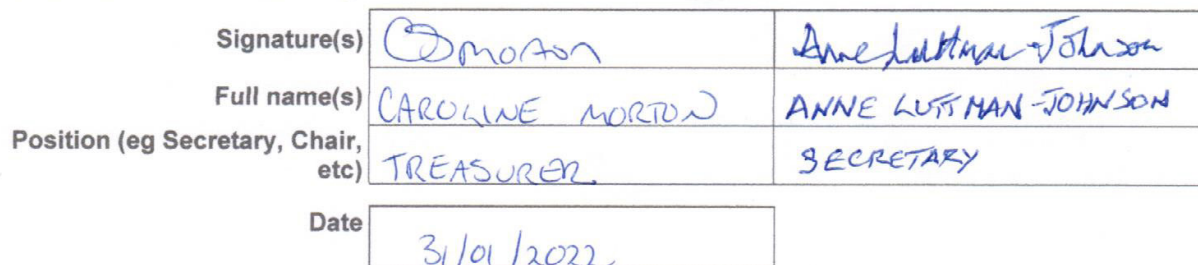 Signature(s) CSMorton Anne Luttman-Johnson
Full name(s) CAROLINE MORTON ANNE LUTTMAN-JOHNSON
Position (eg Secretary, Chair,
etc) TREASURER SECRETARY
Date 31/01/2022